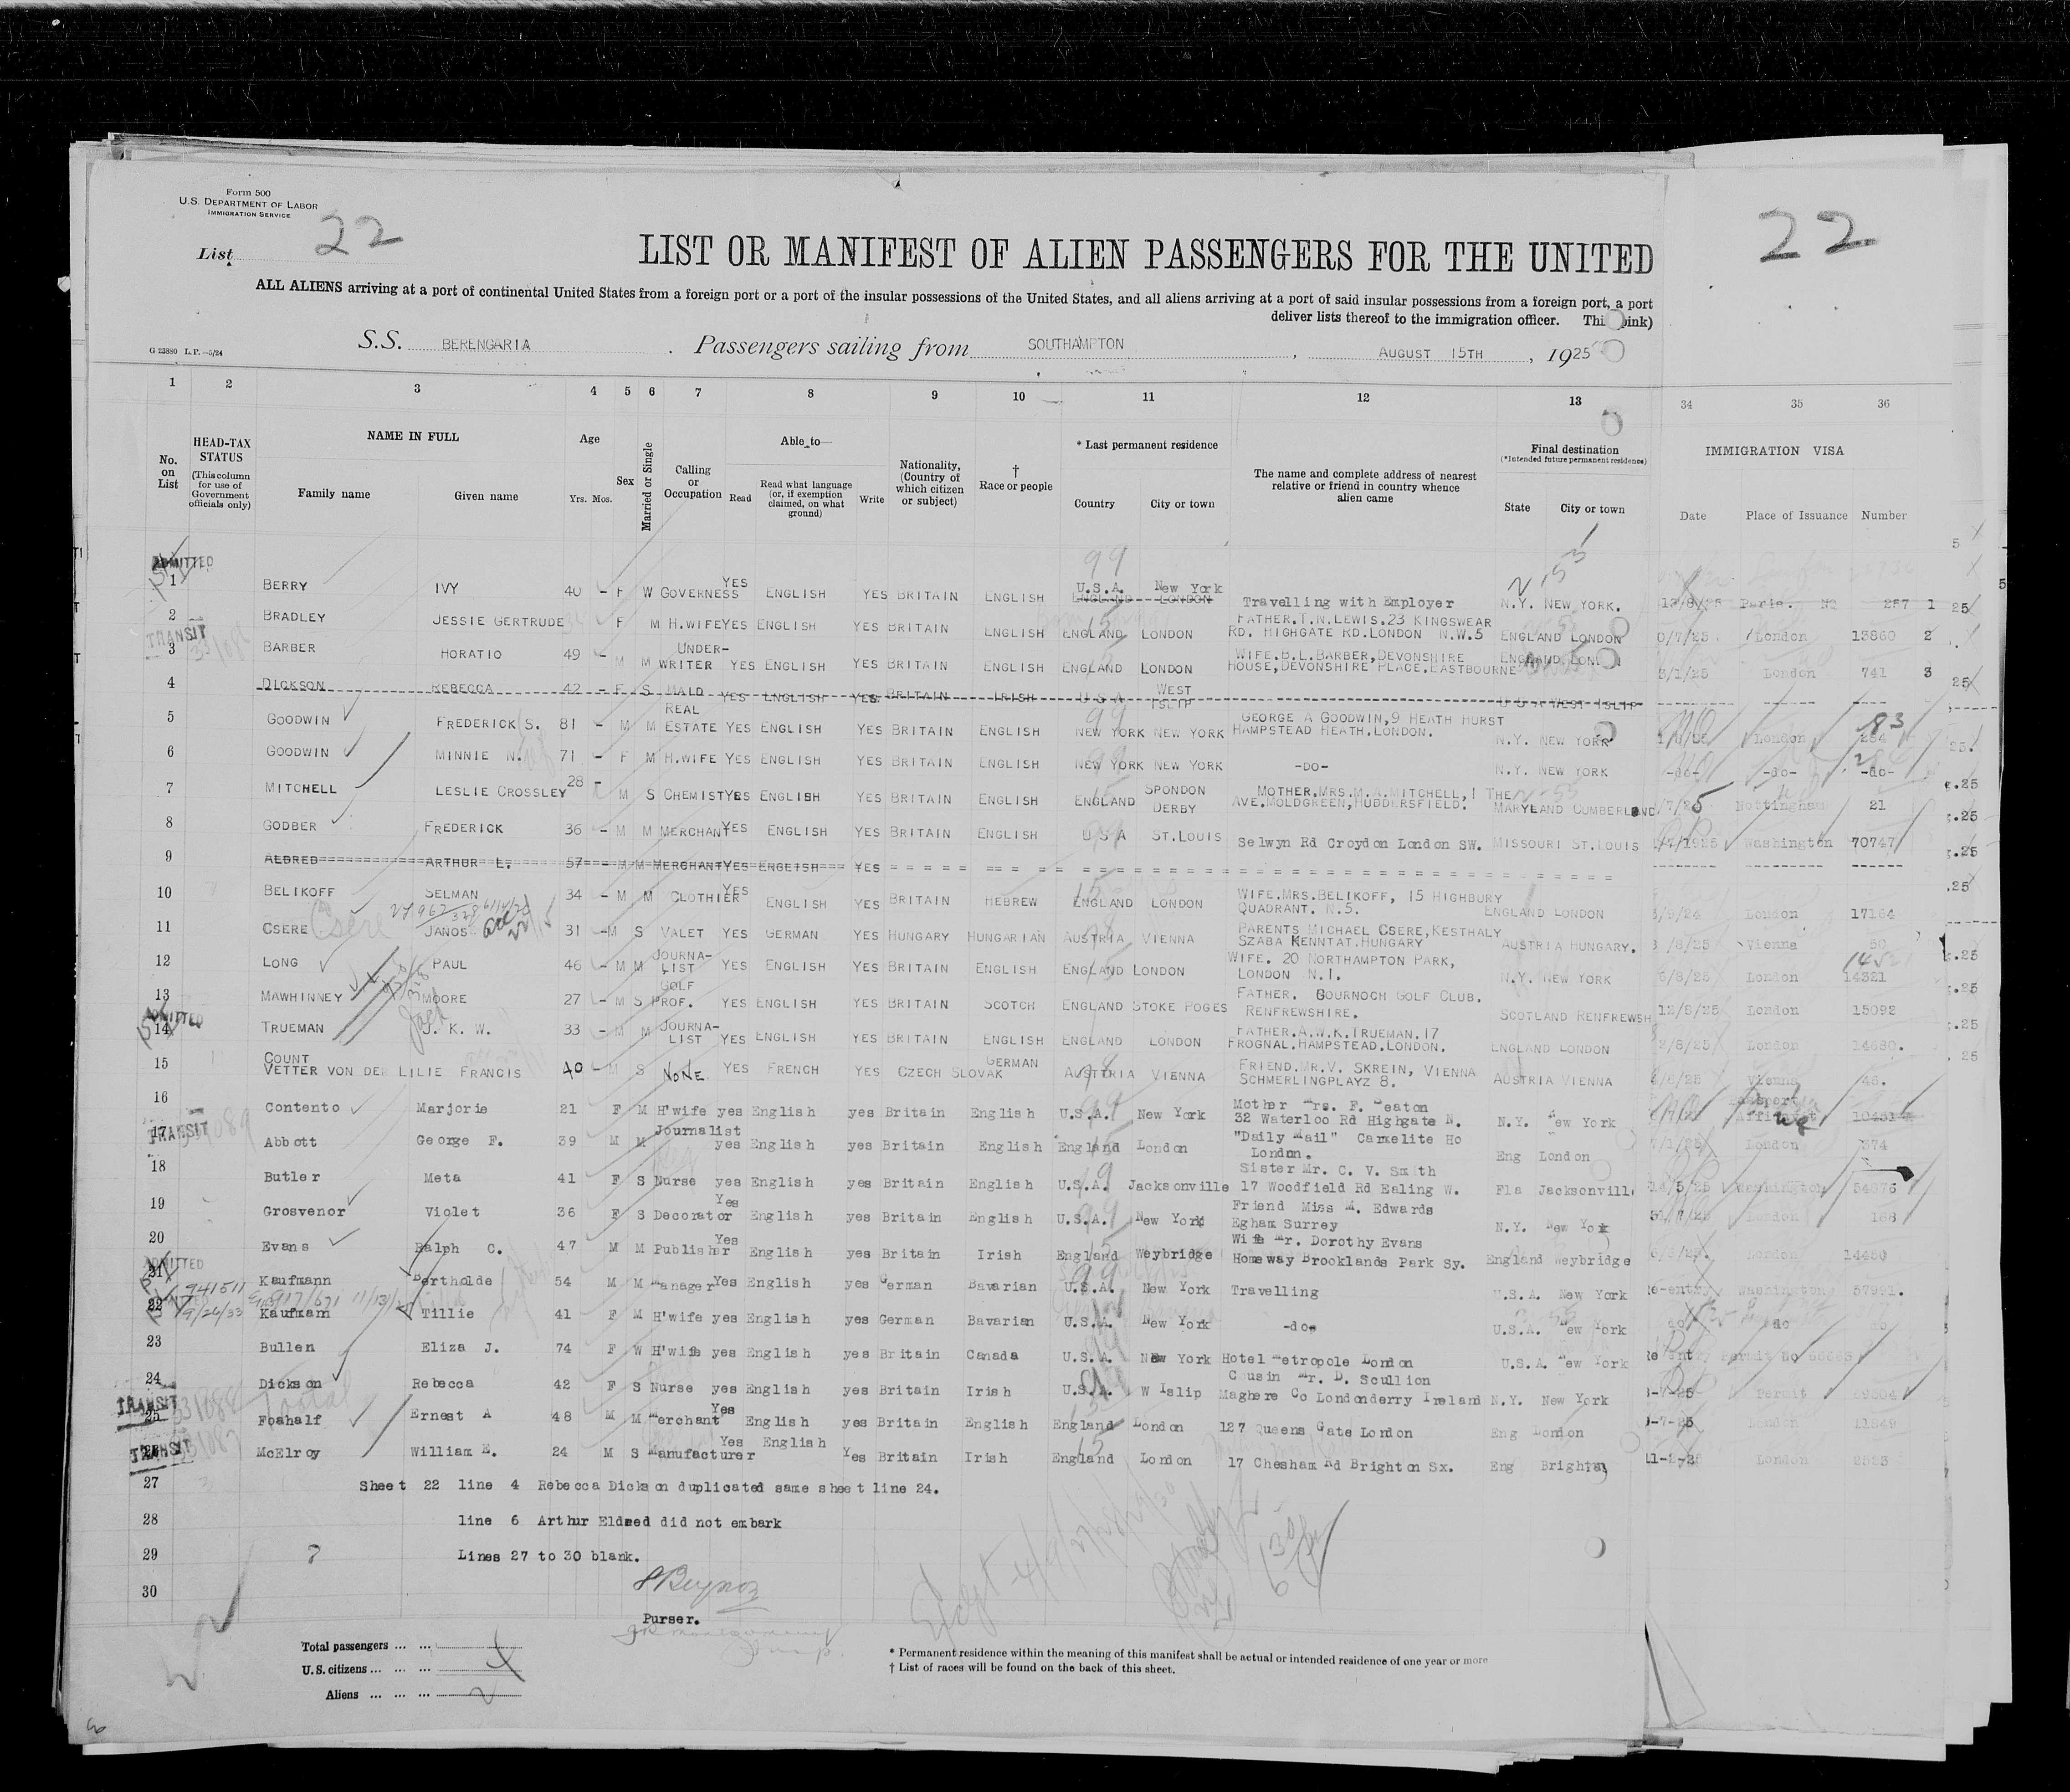 Form 500
U.S. DEPARTMENT OF LABOR
IMMIGRATION SERVICE
List 22
22
LIST OR MANIFEST OF ALIEN PASSENGERS FOR THE UNITED
ALL ALIENS arriving at a port of continental United States from a foreign port or a port of the insular possessions of the United States, and all aliens arriving at a port of said insular possessions from a foreign port, a port
deliver lists thereof to the immigration officer. Thi pink)
G 23880 L.P.—5/24
S.S. BERENGARIA . Passengers sailing from SOUTHAMPTON , AUGUST 15TH , 1925
1 2 3 4 5 6 7 8 9 10 11 12 13 34 35 36
No. on List
HEAD-TAX STATUS (This column for use of Government officials only)
NAME IN FULL
Family name Given name
Age
Yrs. Mos.
Sex
Married or Single
Calling or Occupation
Able to—
Read
Read what language (or, if exemption claimed, on what ground)
Write
Nationality, (Country of which citizen or subject)
† Race or people
* Last permanent residence
Country City or town
The name and complete address of nearest relative or friend in country whence alien came
Final destination
(*Intended future permanent residence)
State City or town
IMMIGRATION VISA
Date Place of Issuance Number
ADMITTED
1 BERRY IVY 40 - F W GOVERNESS YES ENGLISH YES BRITAIN ENGLISH U.S.A. New York ENGLAND LONDON Travelling with Employer N.Y. NEW YORK. 13/8/25 Paris. NO 257 1
2 BRADLEY JESSIE GERTRUDE F M H.WIFE YES ENGLISH YES BRITAIN ENGLISH ENGLAND LONDON FATHER.T.N.LEWIS.23 KINGSWEAR RD. HIGHGATE RD.LONDON N.W.5 ENGLAND LONDON 0/7/25 London 13860 2
TRANSIT
3 BARBER HORATIO 49 - M M UNDER-WRITER YES ENGLISH YES BRITAIN ENGLISH ENGLAND LONDON WIFE.B.L.BARBER,DEVONSHIRE HOUSE,DEVONSHIRE PLACE.EASTBOURNE ENGLAND LON 3/1/25 London 741 3
4 DICKSON REBECCA 42 - F S MAID YES ENGLISH YES BRITAIN IRISH U S A WEST ISLIP U S A WEST ISLIP
5 GOODWIN FREDERICK S. 81 - M M REAL ESTATE YES ENGLISH YES BRITAIN ENGLISH NEW YORK NEW YORK GEORGE A GOODWIN,9 HEATH HURST HAMPSTEAD HEATH.LONDON. N.Y. NEW YORK London 83
6 GOODWIN MINNIE N. 71 - F M H.WIFE YES ENGLISH YES BRITAIN ENGLISH NEW YORK NEW YORK -DO- N.Y. NEW YORK -do- -do- -do-
7 MITCHELL LESLIE CROSSLEY 28 - M S CHEMIST YES ENGLISH YES BRITAIN ENGLISH ENGLAND SPONDON DERBY MOTHER.MRS.M.A.MITCHELL,1 THE AVE.MOLDGREEN,HUDDERSFIELD. MARYLAND CUMBERLAND /7/25 Nottingham 21
8 GODBER FREDERICK 36 - M M MERCHANT YES ENGLISH YES BRITAIN ENGLISH U S A ST.LOUIS Selwyn Rd Croydon London SW. MISSOURI ST.LOUIS /7/1925 Washington 70747
9 ALDRED ARTHUR L. 57 - M M MERCHANT YES ENGLISH YES
10 BELIKOFF SELMAN 34 - M M CLOTHIER YES ENGLISH YES BRITAIN HEBREW ENGLAND LONDON WIFE.MRS.BELIKOFF, 15 HIGHBURY QUADRANT. N.5. ENGLAND LONDON 3/9/24 London 17164
11 CSERE Csere JANOS 31 - M S VALET YES GERMAN YES HUNGARY HUNGARIAN AUSTRIA VIENNA PARENTS MICHAEL CSERE,KESTHALY SZABA KENNTAT.HUNGARY AUSTRIA HUNGARY. /8/25 Vienna 50
12 LONG PAUL 46 - M M JOURNA-LIST YES ENGLISH YES BRITAIN ENGLISH ENGLAND LONDON WIFE. 20 NORTHAMPTON PARK, LONDON N.1. N.Y. NEW YORK 6/8/25 London 14321
13 MAWHINNEY MOORE 27 - M S GOLF PROF. YES ENGLISH YES BRITAIN SCOTCH ENGLAND STOKE POGES FATHER. GOURNOCH GOLF CLUB. RENFREWSHIRE. SCOTLAND RENFREWSH 12/8/25 London 15092
ADMITTED
14 TRUEMAN J. K. W. 33 - M M JOURNA-LIST YES ENGLISH YES BRITAIN ENGLISH ENGLAND LONDON FATHER.A.W.K.TRUEMAN.17 FROGNAL.HAMPSTEAD.LONDON. ENGLAND LONDON 2/8/25 London
15 COUNT VETTER VON DER LILIE FRANCIS 40 - M S NONE YES FRENCH YES CZECH SLOVAK GERMAN AUSTRIA VIENNA FRIEND.MR.V. SKREIN, VIENNA SCHMERLINGPLAYZ 8. AUSTRIA VIENNA Vienna 46.
16 Contento Marjorie 21 F M H'wife yes English yes Britain English U.S.A. New York Mother Mrs. F. Heaton 32 Waterloo Rd Highgate N. N.Y. New York 10431
TRANSIT
17 Abbott George F. 39 M M Journalist yes English yes Britain English England London "Daily Mail" Carmelite Ho London. Eng London 7/1/25 London 374
18 Butler Meta 41 F S Nurse yes English yes Britain English U.S.A. Jacksonville Sister Mr. C. V. Smith 17 Woodfield Rd Ealing W. Fla Jacksonvill Washington 54676
19 Grosvenor Violet 36 F S Decorator Yes English yes Britain English U.S.A. New York Friend Miss M. Edwards Egham Surrey N.Y. New York London 168
20 Evans Ralph C. 47 M M Publisher Yes English yes Britain Irish England Weybridge Wife Mr. Dorothy Evans Homeway Brooklands Park Sy. England Weybridge London 14450
ADMITTED
21 Kaufmann Bertholde 54 M M Manager Yes English yes German Bavarian U.S.A. New York Travelling U.S.A. New York Re-entry Washington 57991.
22 Kaufmann Tillie 41 F M H'wife yes English yes German Bavarian U.S.A. New York -do- U.S.A. New York do do
23 Bullen Eliza J. 74 F W H'wife yes English yes Britain Canada U.S.A. New York Hotel Metropole London U.S.A. New York Re entry Permit No
24 Dickson Rebecca 42 F S Nurse yes English yes Britain Irish U.S.A. W Islip Cousin Mr. D. Scullion Maghere Co Londonderry Ireland N.Y. New York Permit
TRANSIT
25 Foahalf Ernest A 48 M M Merchant Yes English yes Britain English England London 127 Queens Gate London Eng London -7-25 London 11849
TRANSIT
26 McElroy William E. 24 M S Manufacturer Yes English Yes Britain Irish England London 17 Chesham Rd Brighton Sx. Eng Brighton London 2523
27 Sheet 22 line 4 Rebecca Dickson duplicated same sheet line 24.
28 line 6 Arthur Eldred did not embark
29 Lines 27 to 30 blank.
30
Purser.
Total passengers ... ...
U.S. citizens ... ... ...
Aliens ... ... ...
* Permanent residence within the meaning of this manifest shall be actual or intended residence of one year or more
† List of races will be found on the back of this sheet.